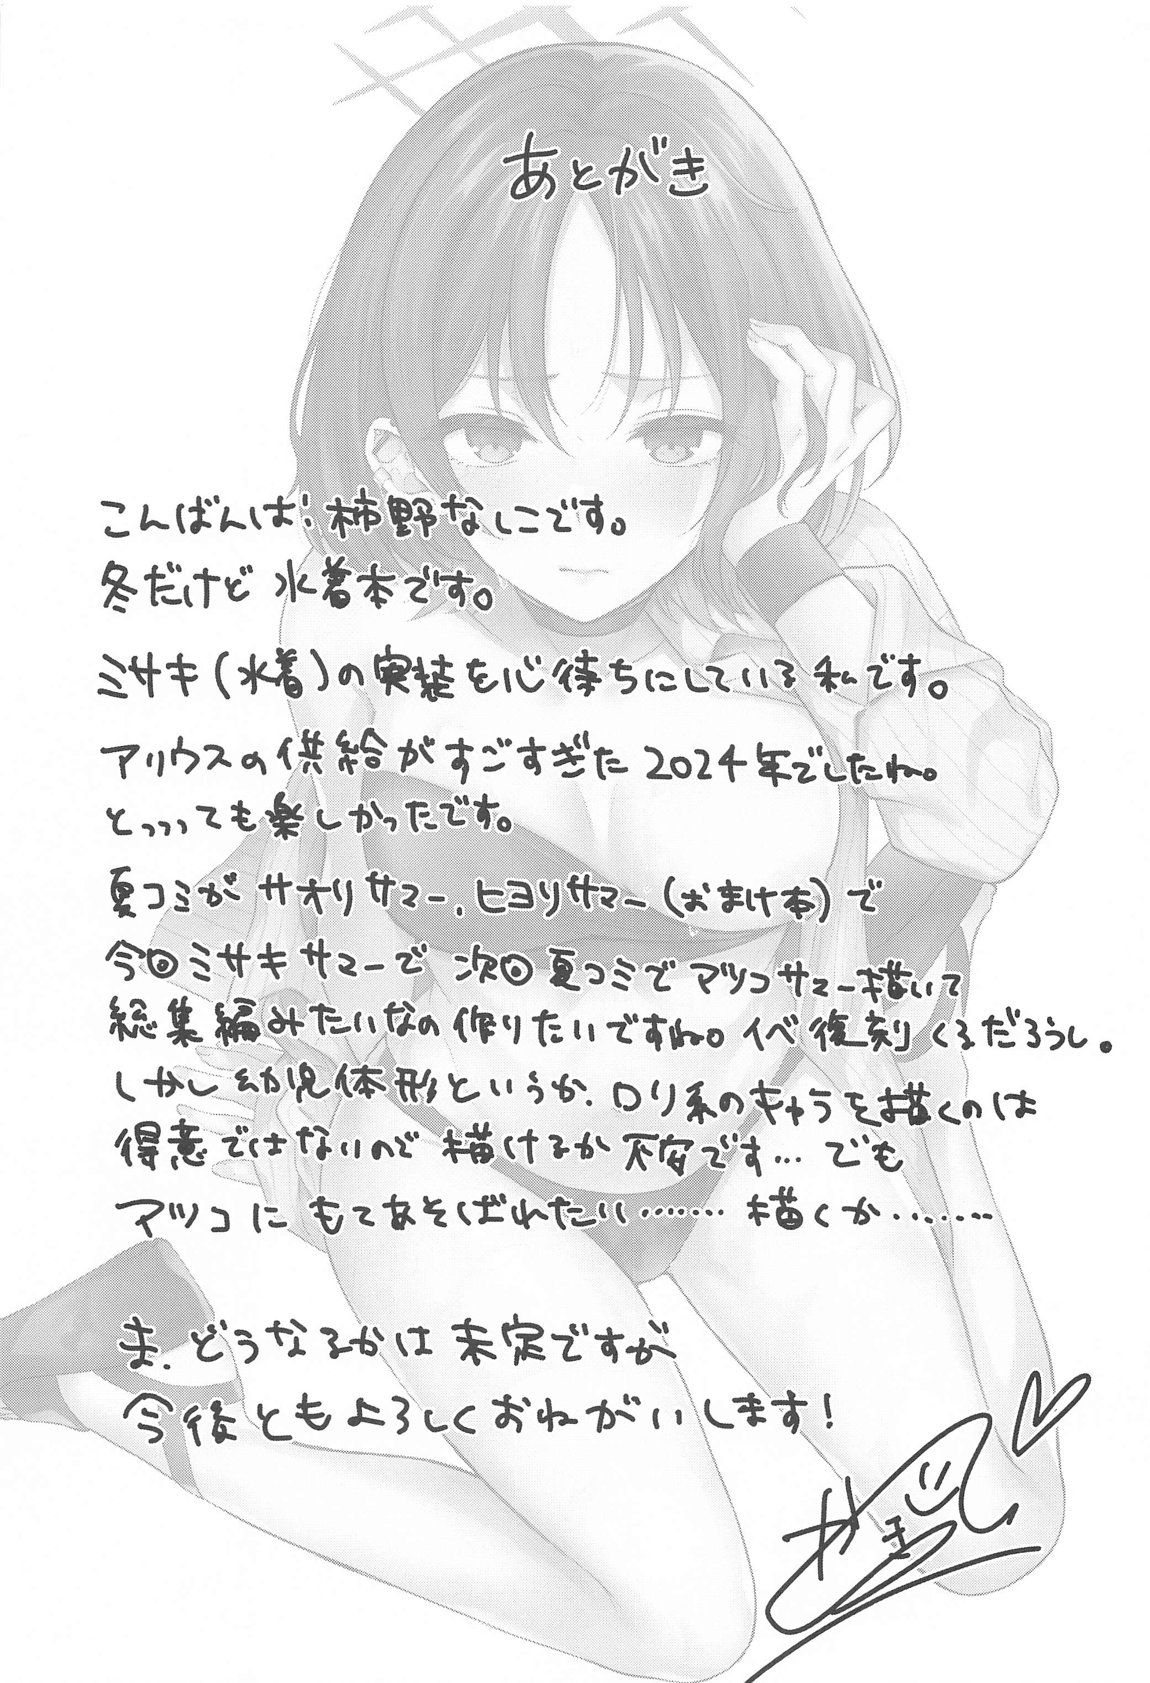 あとがき
こんばんは、柿野なしこです。
冬だけど 水着本です。
ミサキ(水着)の実装を心待ちにしている私です。
アリウスの供給がすごすぎた 2024年でしたね。
とっっっても楽しかったです。
夏コミが サオリサマー、ヒヨリサマー(おまけ本)で
今回ミサキサマーで 次回夏コミでアツコサマー描いて
総集編みたいなの作りたいですね。イベ復刻くるだろうし。
しかし幼児体形というか、ロリ系のキャラを描くのは
得意ではないので描けるか不安です… でも
アツコに もてあそばれたい……… 描くか………
ま、どうなるかは未定ですが
今後ともよろしくおねがいします!
かき